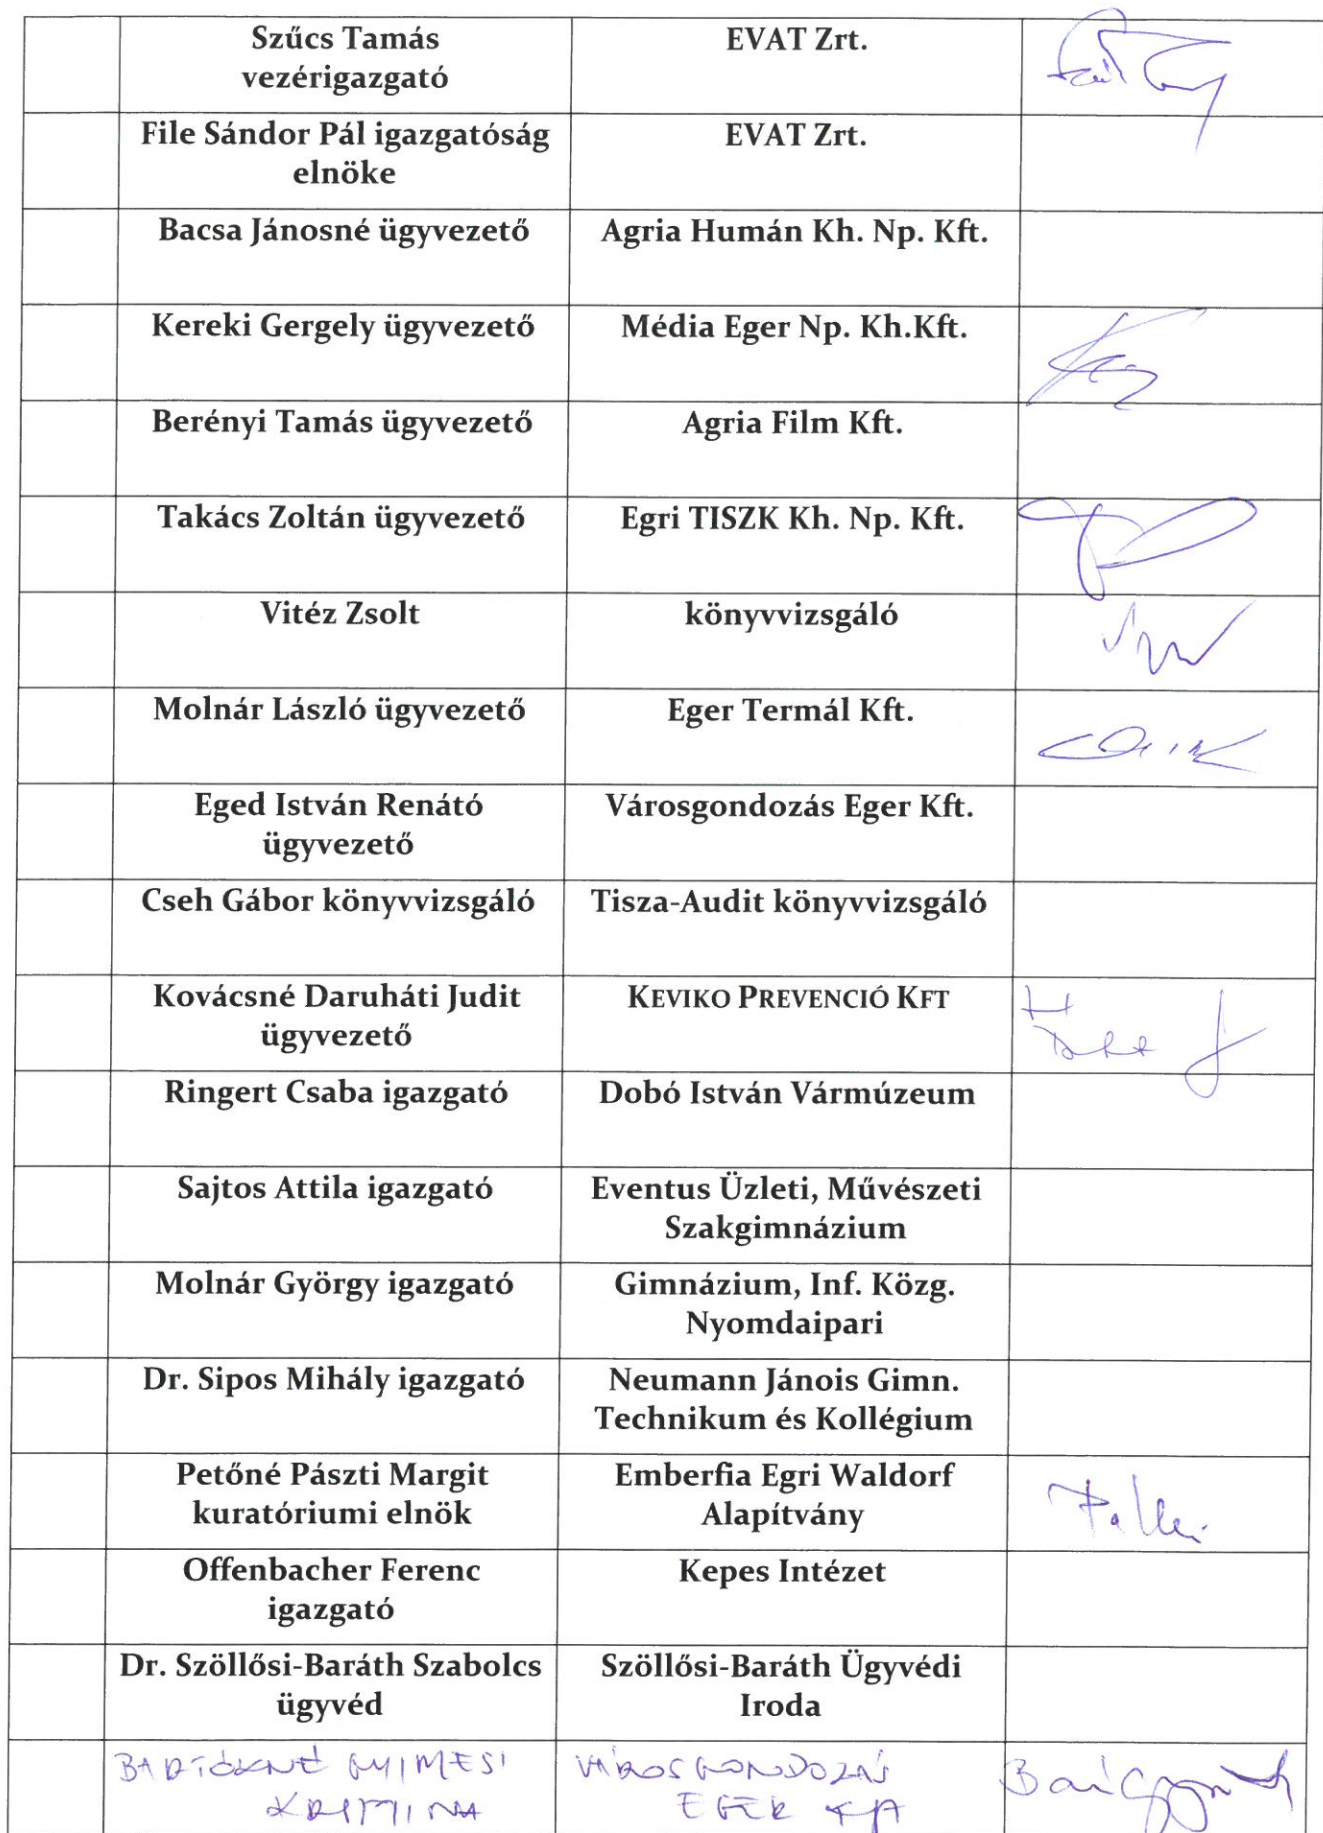 Szűcs Tamás
vezérigazgató
EVAT Zrt.
File Sándor Pál igazgatóság
elnöke
EVAT Zrt.
Bacsa Jánosné ügyvezető
Agria Humán Kh. Np. Kft.
Kereki Gergely ügyvezető
Média Eger Np. Kh.Kft.
Berényi Tamás ügyvezető
Agria Film Kft.
Takács Zoltán ügyvezető
Egri TISZK Kh. Np. Kft.
Vitéz Zsolt
könyvvizsgáló
Molnár László ügyvezető
Eger Termál Kft.
Eged István Renátó
ügyvezető
Városgondozás Eger Kft.
Cseh Gábor könyvvizsgáló
Tisza-Audit könyvvizsgáló
Kovácsné Daruháti Judit
ügyvezető
KEVIKO PREVENCIÓ KFT
Ringert Csaba igazgató
Dobó István Vármúzeum
Sajtos Attila igazgató
Eventus Üzleti, Művészeti
Szakgimnázium
Molnár György igazgató
Gimnázium, Inf. Közg.
Nyomdaipari
Dr. Sipos Mihály igazgató
Neumann Jánois Gimn.
Technikum és Kollégium
Petőné Pászti Margit
kuratóriumi elnök
Emberfia Egri Waldorf
Alapítvány
Offenbacher Ferenc
igazgató
Kepes Intézet
Dr. Szöllősi-Baráth Szabolcs
ügyvéd
Szöllősi-Baráth Ügyvédi
Iroda
GYIMESI
VÁROSGONDOZÁS
EGER Kft